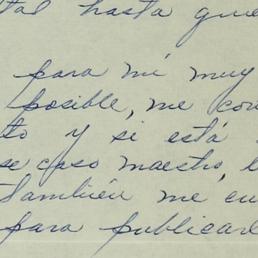 tal hasta que
para mí muy
posible, me con
to y si está
se caso maestro, l
también me en
para publicarl